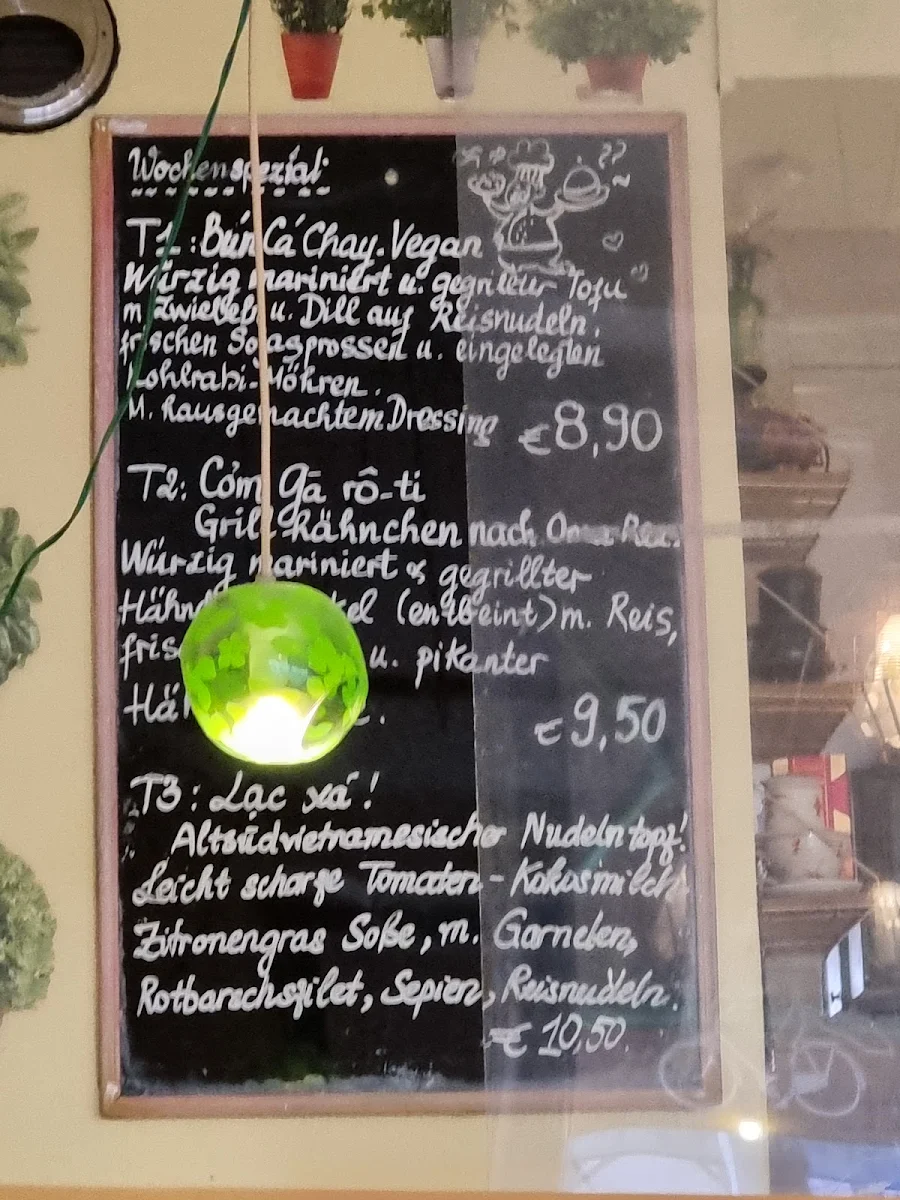 Wochenspezial:
T1: Bún Cá Chay. Vegan
Würzig mariniert u. gegrillter Tofu
m Zwiebel u. Dill auf Reisnudeln.
frischen Sojasprossen u. eingelegten
Kohlrabi-Möhren.
M. hausgemachtem Dressing €8,90
T2: Cơm gà rô-ti
Grill Hähnchen nach Oma
Würzig mariniert & gegrillter
(entbeint) m. Reis,
u. pikanter
€9,50
T3: Lạc xá!
Altsüdvietnamesischer Nudeln topf!
Leicht scharfe Tomaten-Kokosmilch
Zitronengras Soße, m. Garnelen,
Rotbarschsfilet, Sepien, Reisnudeln.
€ 10,50.